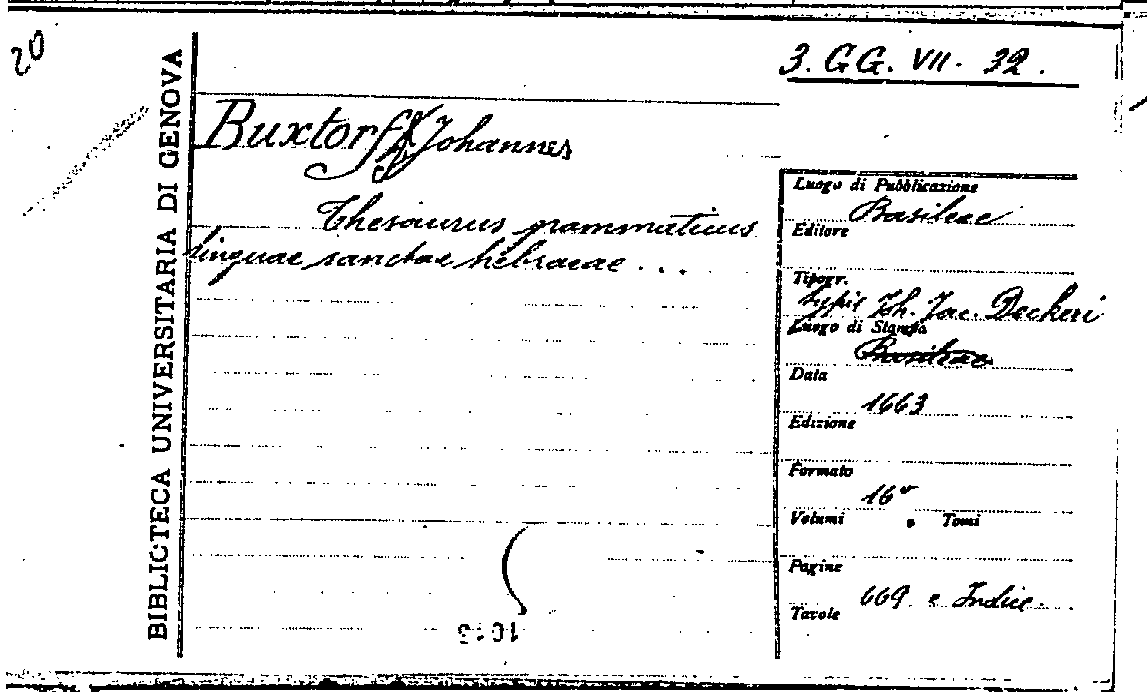 20
3. GG. VII. 32.
BIBLIOTECA UNIVERSITARIA DI GENOVA
Buxtorf Johannes
Thesaurus grammaticus
linguae sanctae hebraeae ...
Luogo di Pubblicazione
Basileae
Editore
Tipogr.
typis Joh. Jac. Deckeri
Luogo di Stampa
Basileae
Data
1663
Edizione
Formato
16°
Volumi o Tomi
Pagine
669 e Indice
Tavole